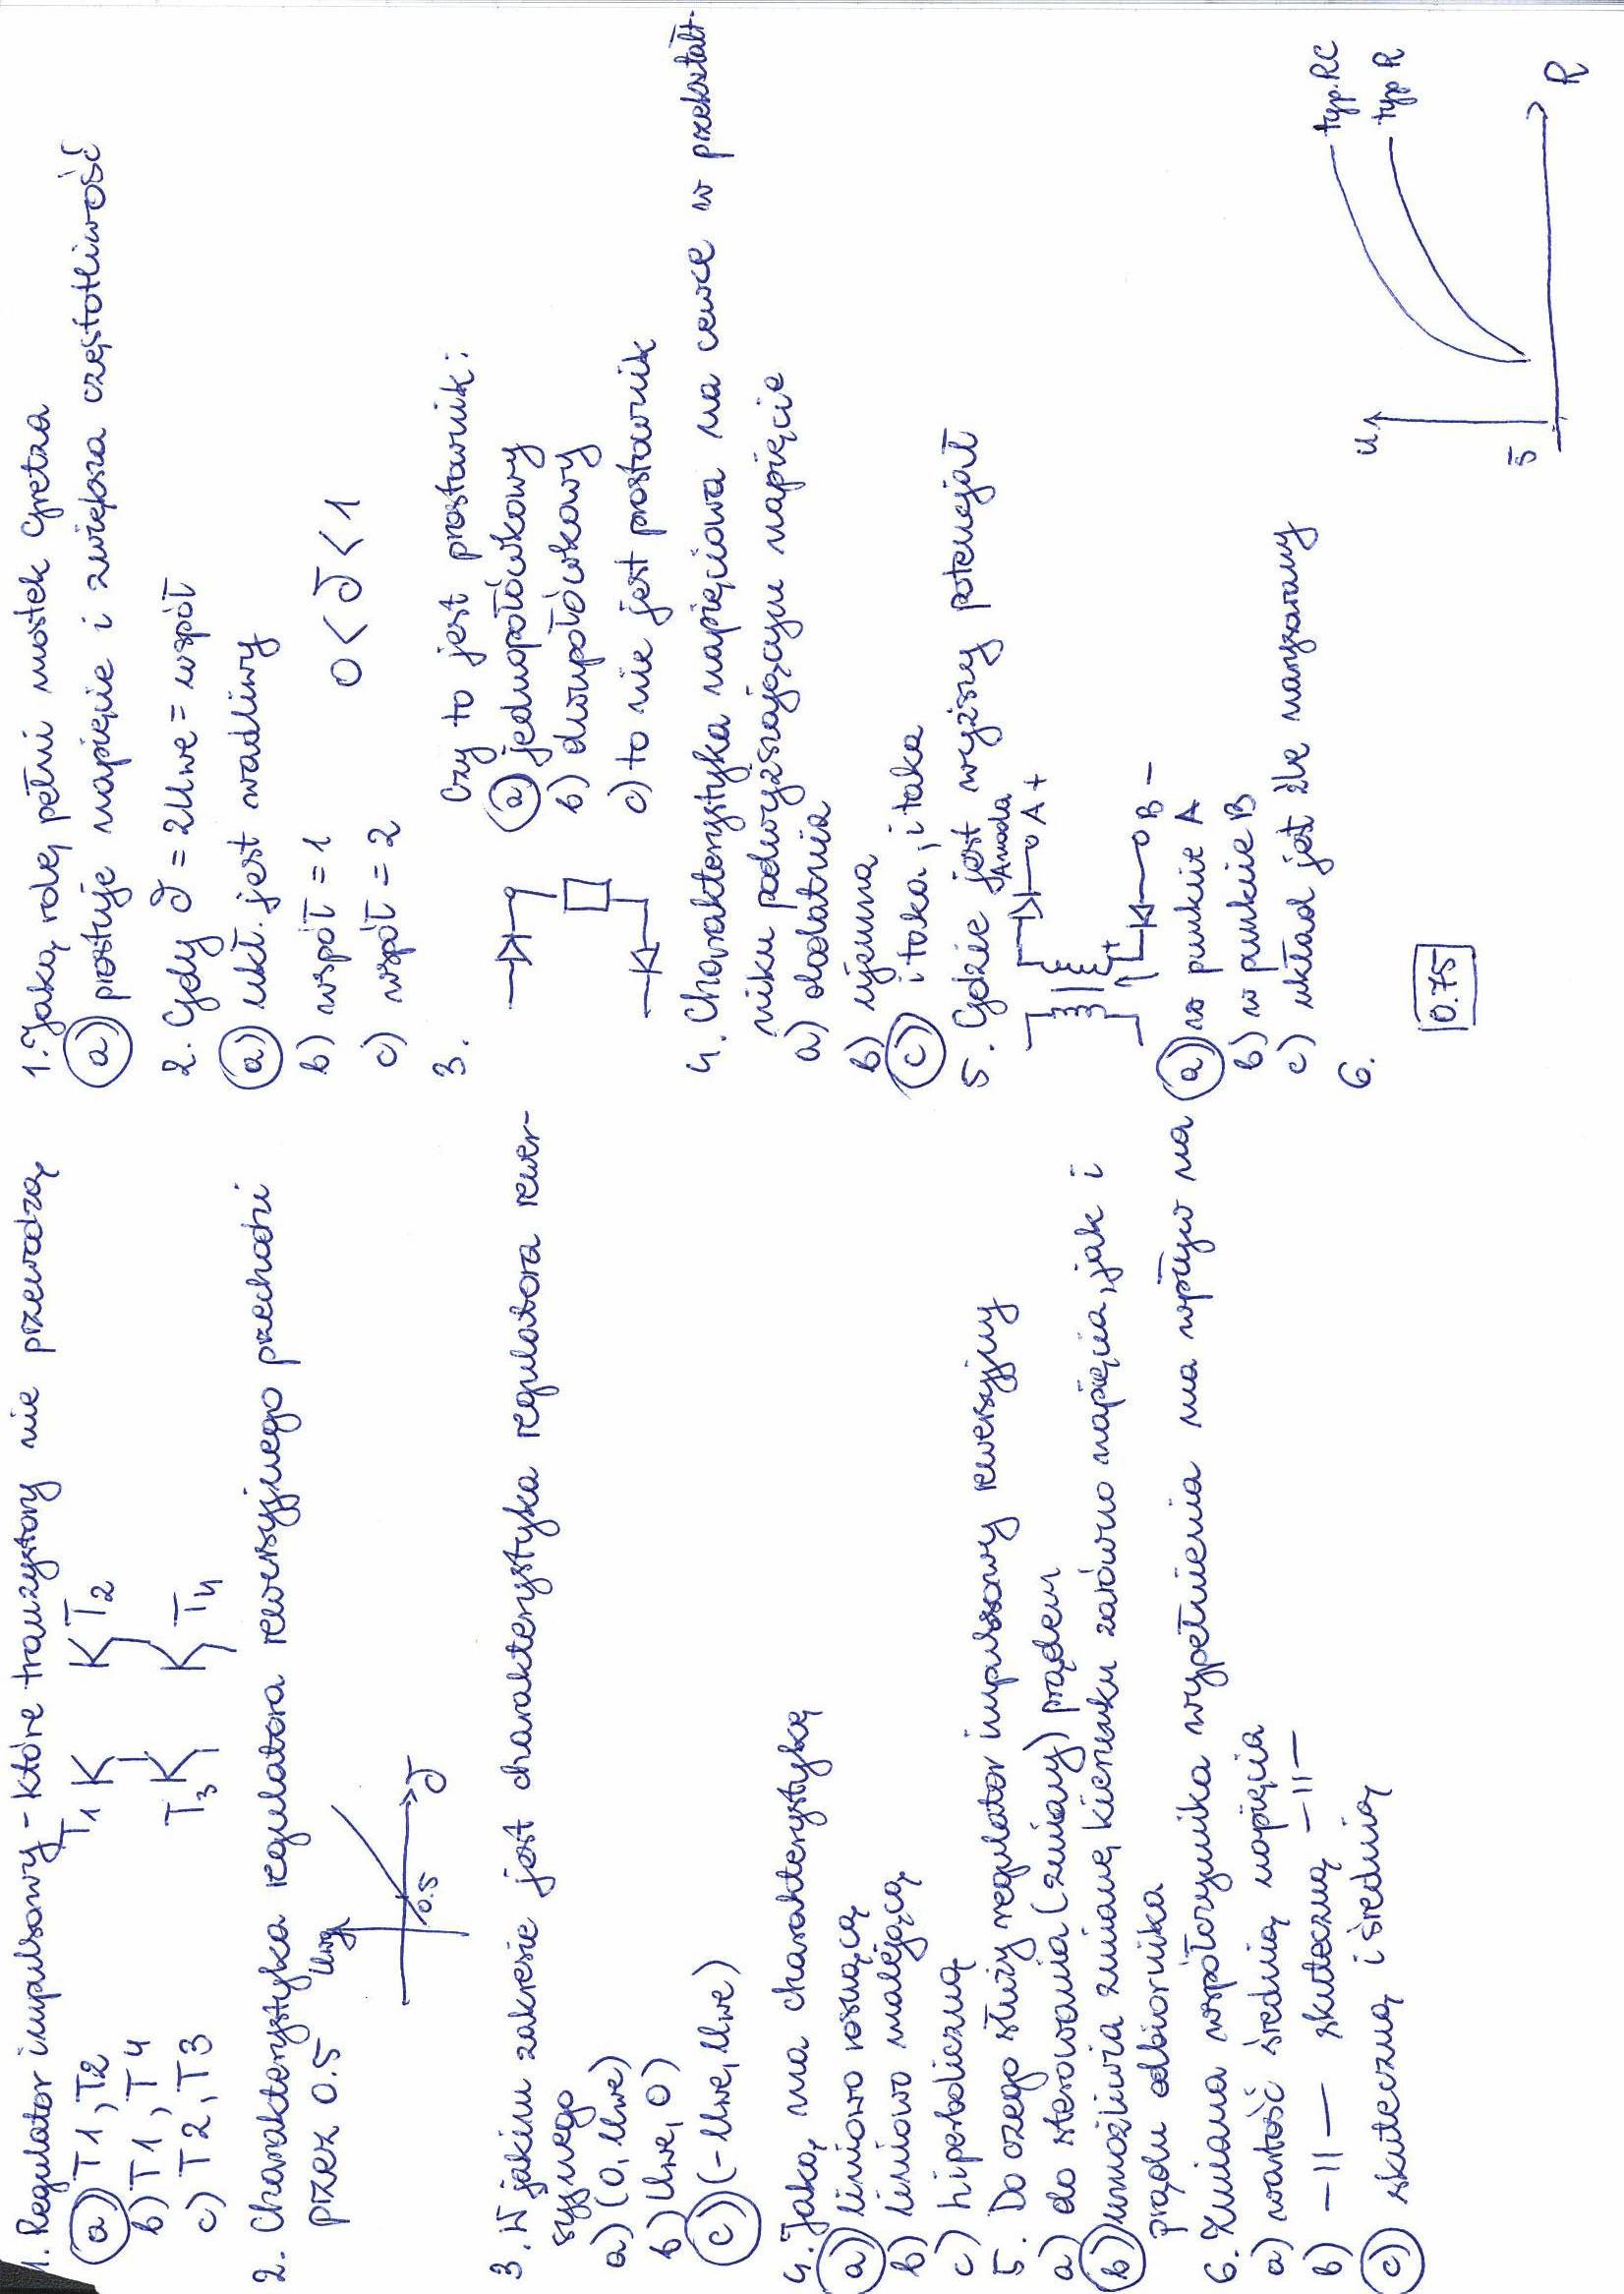 1. Regulator impulsowy - które tranzystory nie przewodzą
a) T1, T2
b) T1, T4
c) T2, T3
T1 T2
T3 T4
2. Charakterystyka regulatora rewersyjnego przechodzi
przez 0.5
Uwy
0.5
3. W jakim zakresie jest charakterystyka regulatora rewer-
syjnego
a) (0, Uwe)
b) Uwe, 0)
c) (-Uwe, Uwe)
4. Jaką ma charakterystykę
a) liniowo rosnącą
b) liniowo malejącą
c) hiperboliczną
5. Do czego służy regulator impulsowy rewersyjny
a) do sterowania (zmiany) prądem
b) umożliwia zmianę kierunku zarówno napięcia, jak i
prądu odbiornika
6. Zmiana współczynnika wypełnienia ma wpływ na
a) wartość średnią napięcia
b) -||- skuteczną -||-
c) skuteczną i średnią
1. Jaką rolę pełni mostek Gretza
a) prostuje napięcie i zwiększa częstotliwość
2. Gdy δ = 2Uwe = współ
a) ukł. jest wadliwy
b) współ = 1
c) współ = 2
0 < δ < 1
3.
Czy to jest prostownik:
a) jednopołówkowy
b) dwupołówkowy
c) to nie jest prostownik
4. Charakterystyka napięciowa na cewce w przekształt-
niku podwyższającym napięcie
a) dodatnia
b) ujemna
c) i taka, i taka
5. Gdzie jest wyższy potencjał
Anoda
A +
+
B -
a) w punkcie A
b) w punkcie B
c) układ jest źle narysowany
6.
0.75
U
5
typ. RC
typ R
R